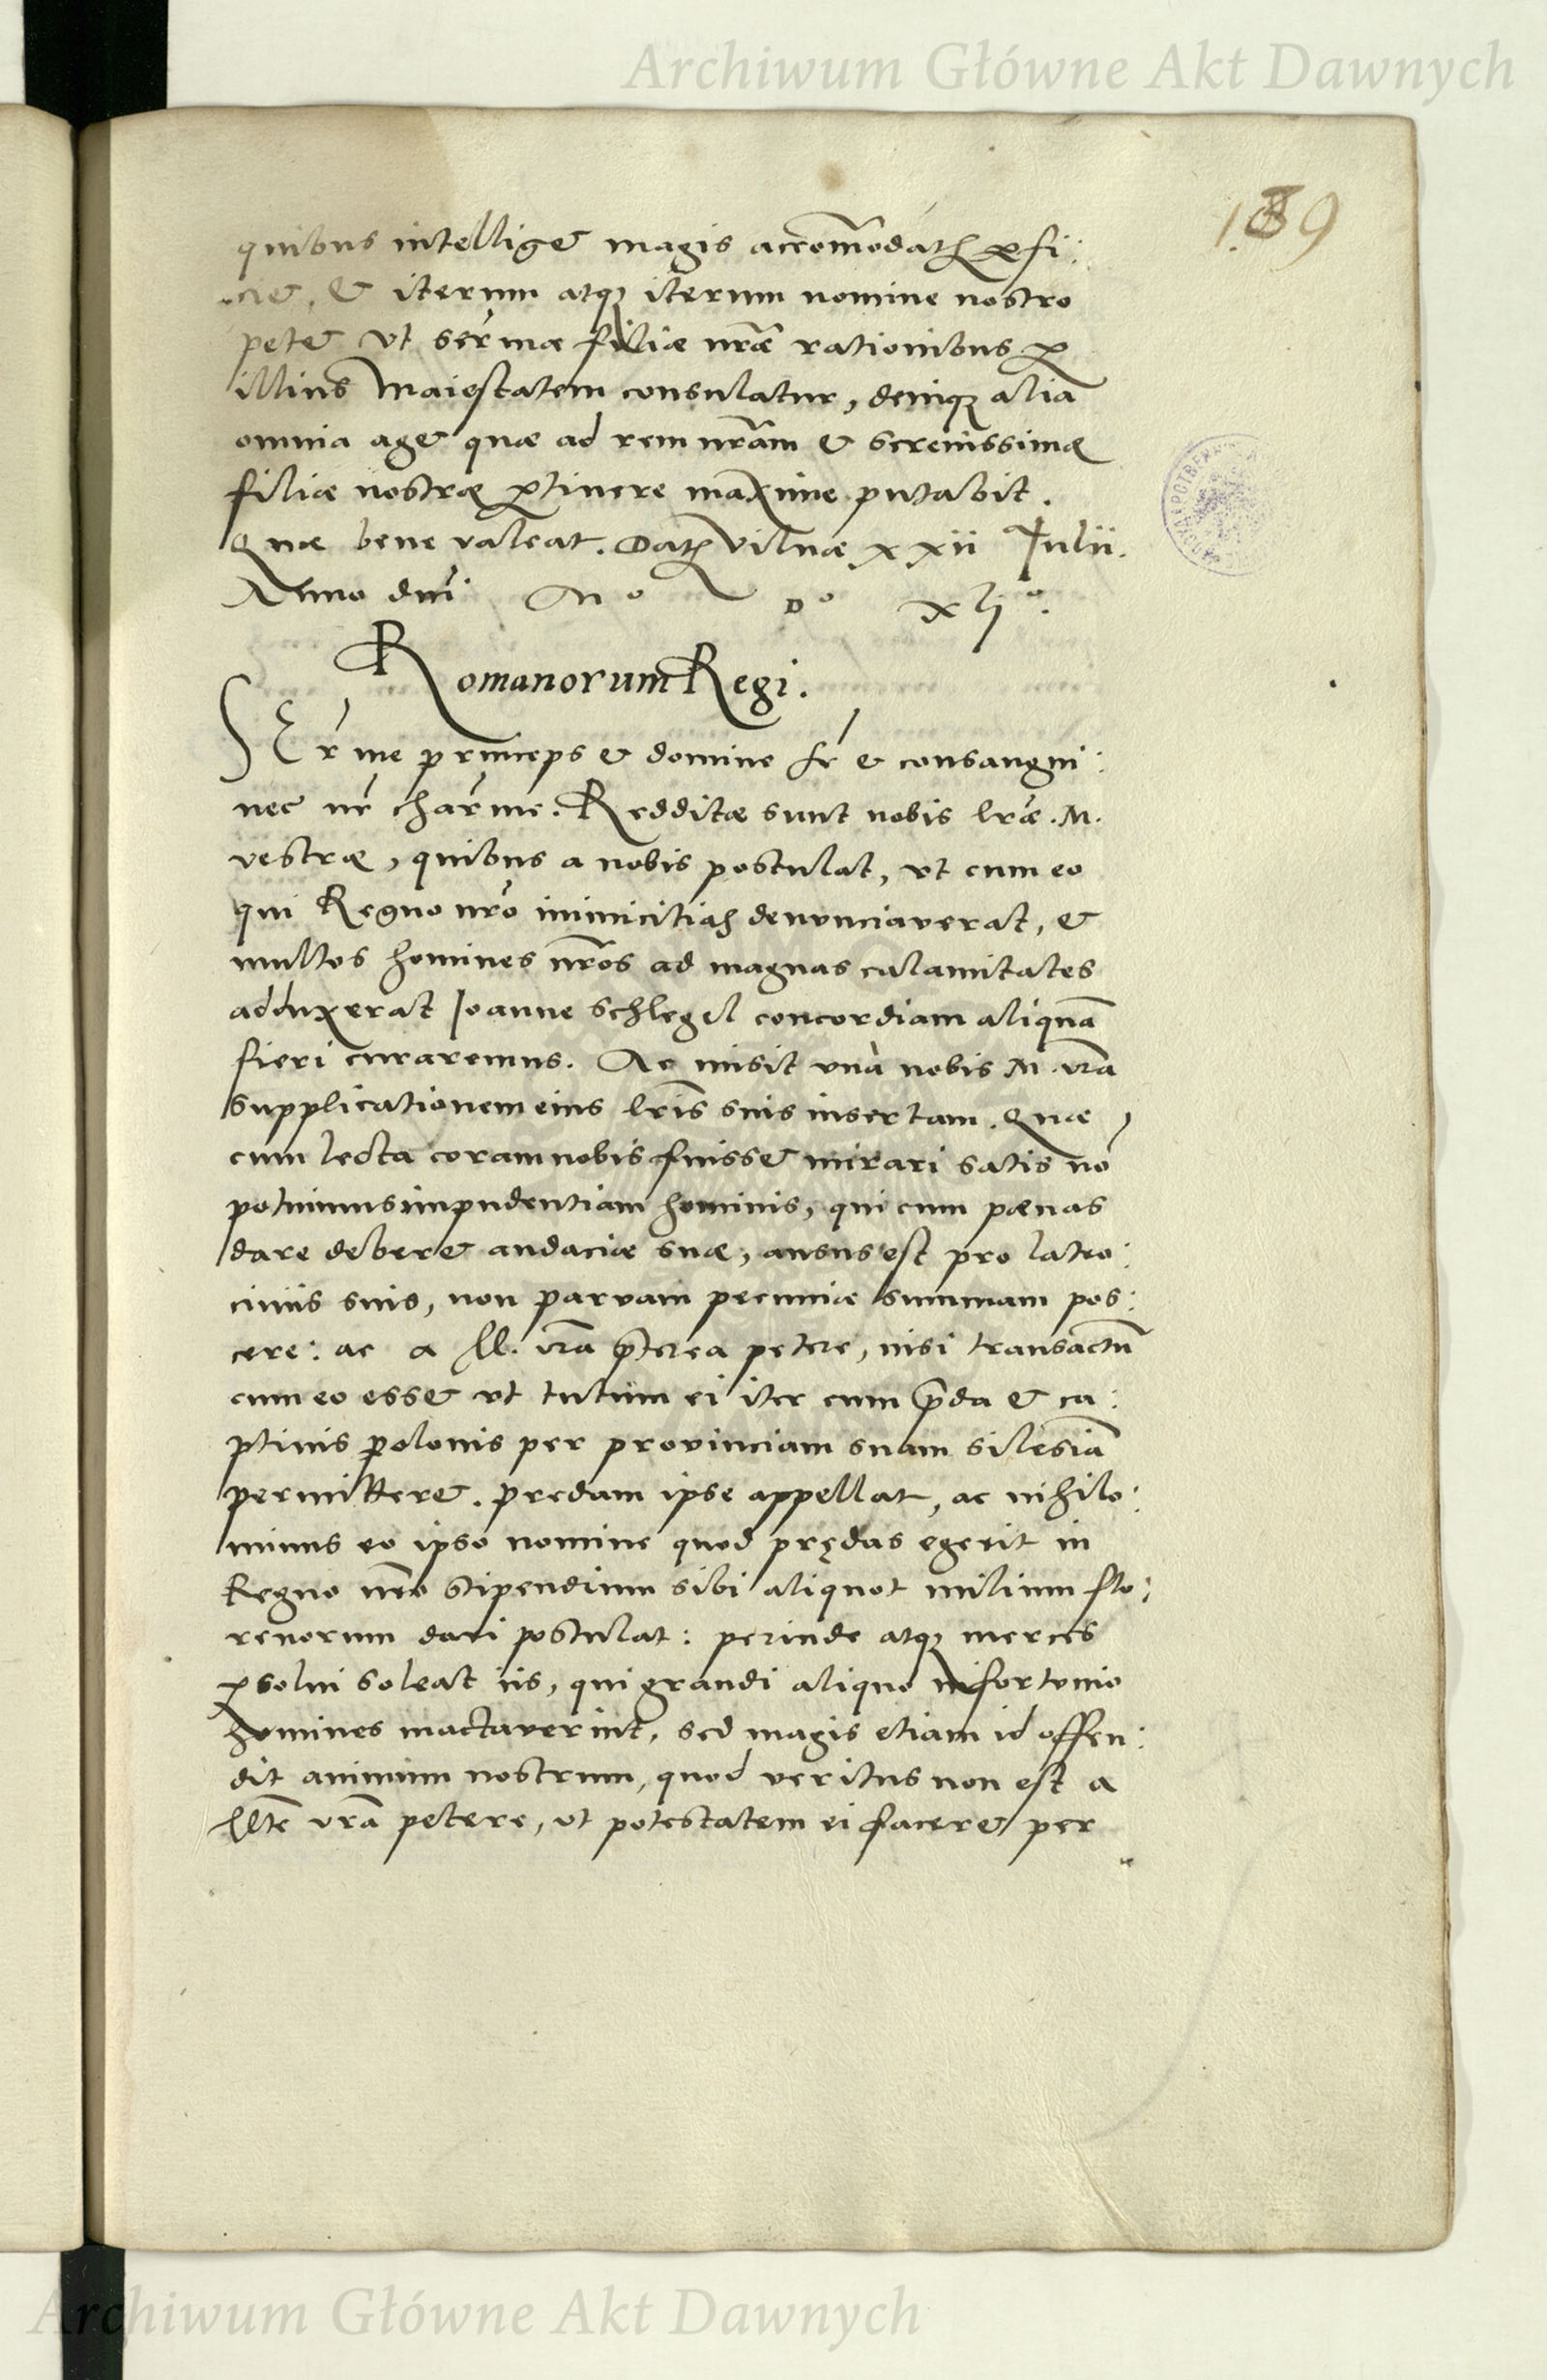 Archiwum Główne Akt Dawnych
189
quibus intelliget magis accom̃odatũ ꝑfi:
ciet, & iterum atq; iterum nomine nostro
petet vt ser̃mæ filiæ nr̃æ rationibus ꝑ
illius Maiestatem consulatur, deniq; alia
omnia aget quæ ad rem nr̃am & serenissimæ
filiæ nostræ ꝑtinere maxime putabit.
Quæ bene valeat. Datũ Vilnæ xxii Julii.
Anno dni M° D° xlj°.
Romanorum Regi.
SEr̃me princeps & domine fr̃ & consangui:
nee nr̃ char̃me. Redditæ sunt nobis lr̃æ. M.
vestræ, quibus a nobis postulat, vt cum eo
qui Regno nr̃o inimicitias denunciaverat, &
multos homines nr̃os ad magnas calamitates
adduxerat Joanne Schlegel concordiam aliquã
fieri curaremus. Ac misit unà nobis M. vr̃a
supplicationem eius lr̃is suis insertam. Quæ
cum lecta coram nobis fuisset mirari satis nõ
potuimus impudentiam hominis, qui cum pœnas
dare deberet audaciæ suæ, ausus est pro latro:
ciniis suis, non parvam pecuniæ summam pos:
cere: ac a M. vr̃a p̃terea petere, nisi transactũ
cum eo esset vt tutum ei iter cum p̃da & ca:
ptivis polonis per provinciam suam silesiã
permitteret. predam ipse appellat, ac nihilo:
minus eo ipso nomine quod prędas egerit in
Regno nr̃o stipendium sibi aliquot milium flo:
renorum dari postulat: perinde atq; merces
ꝑsolui soleat iis, qui grandi aliquo infortunio
homines mactaverint, sed magis etiam id offen:
dit animum nostrum, quod veritus non est a
Mte vr̃a petere, ut potestatem ei faceret per
Archiwum Główne Akt Dawnych